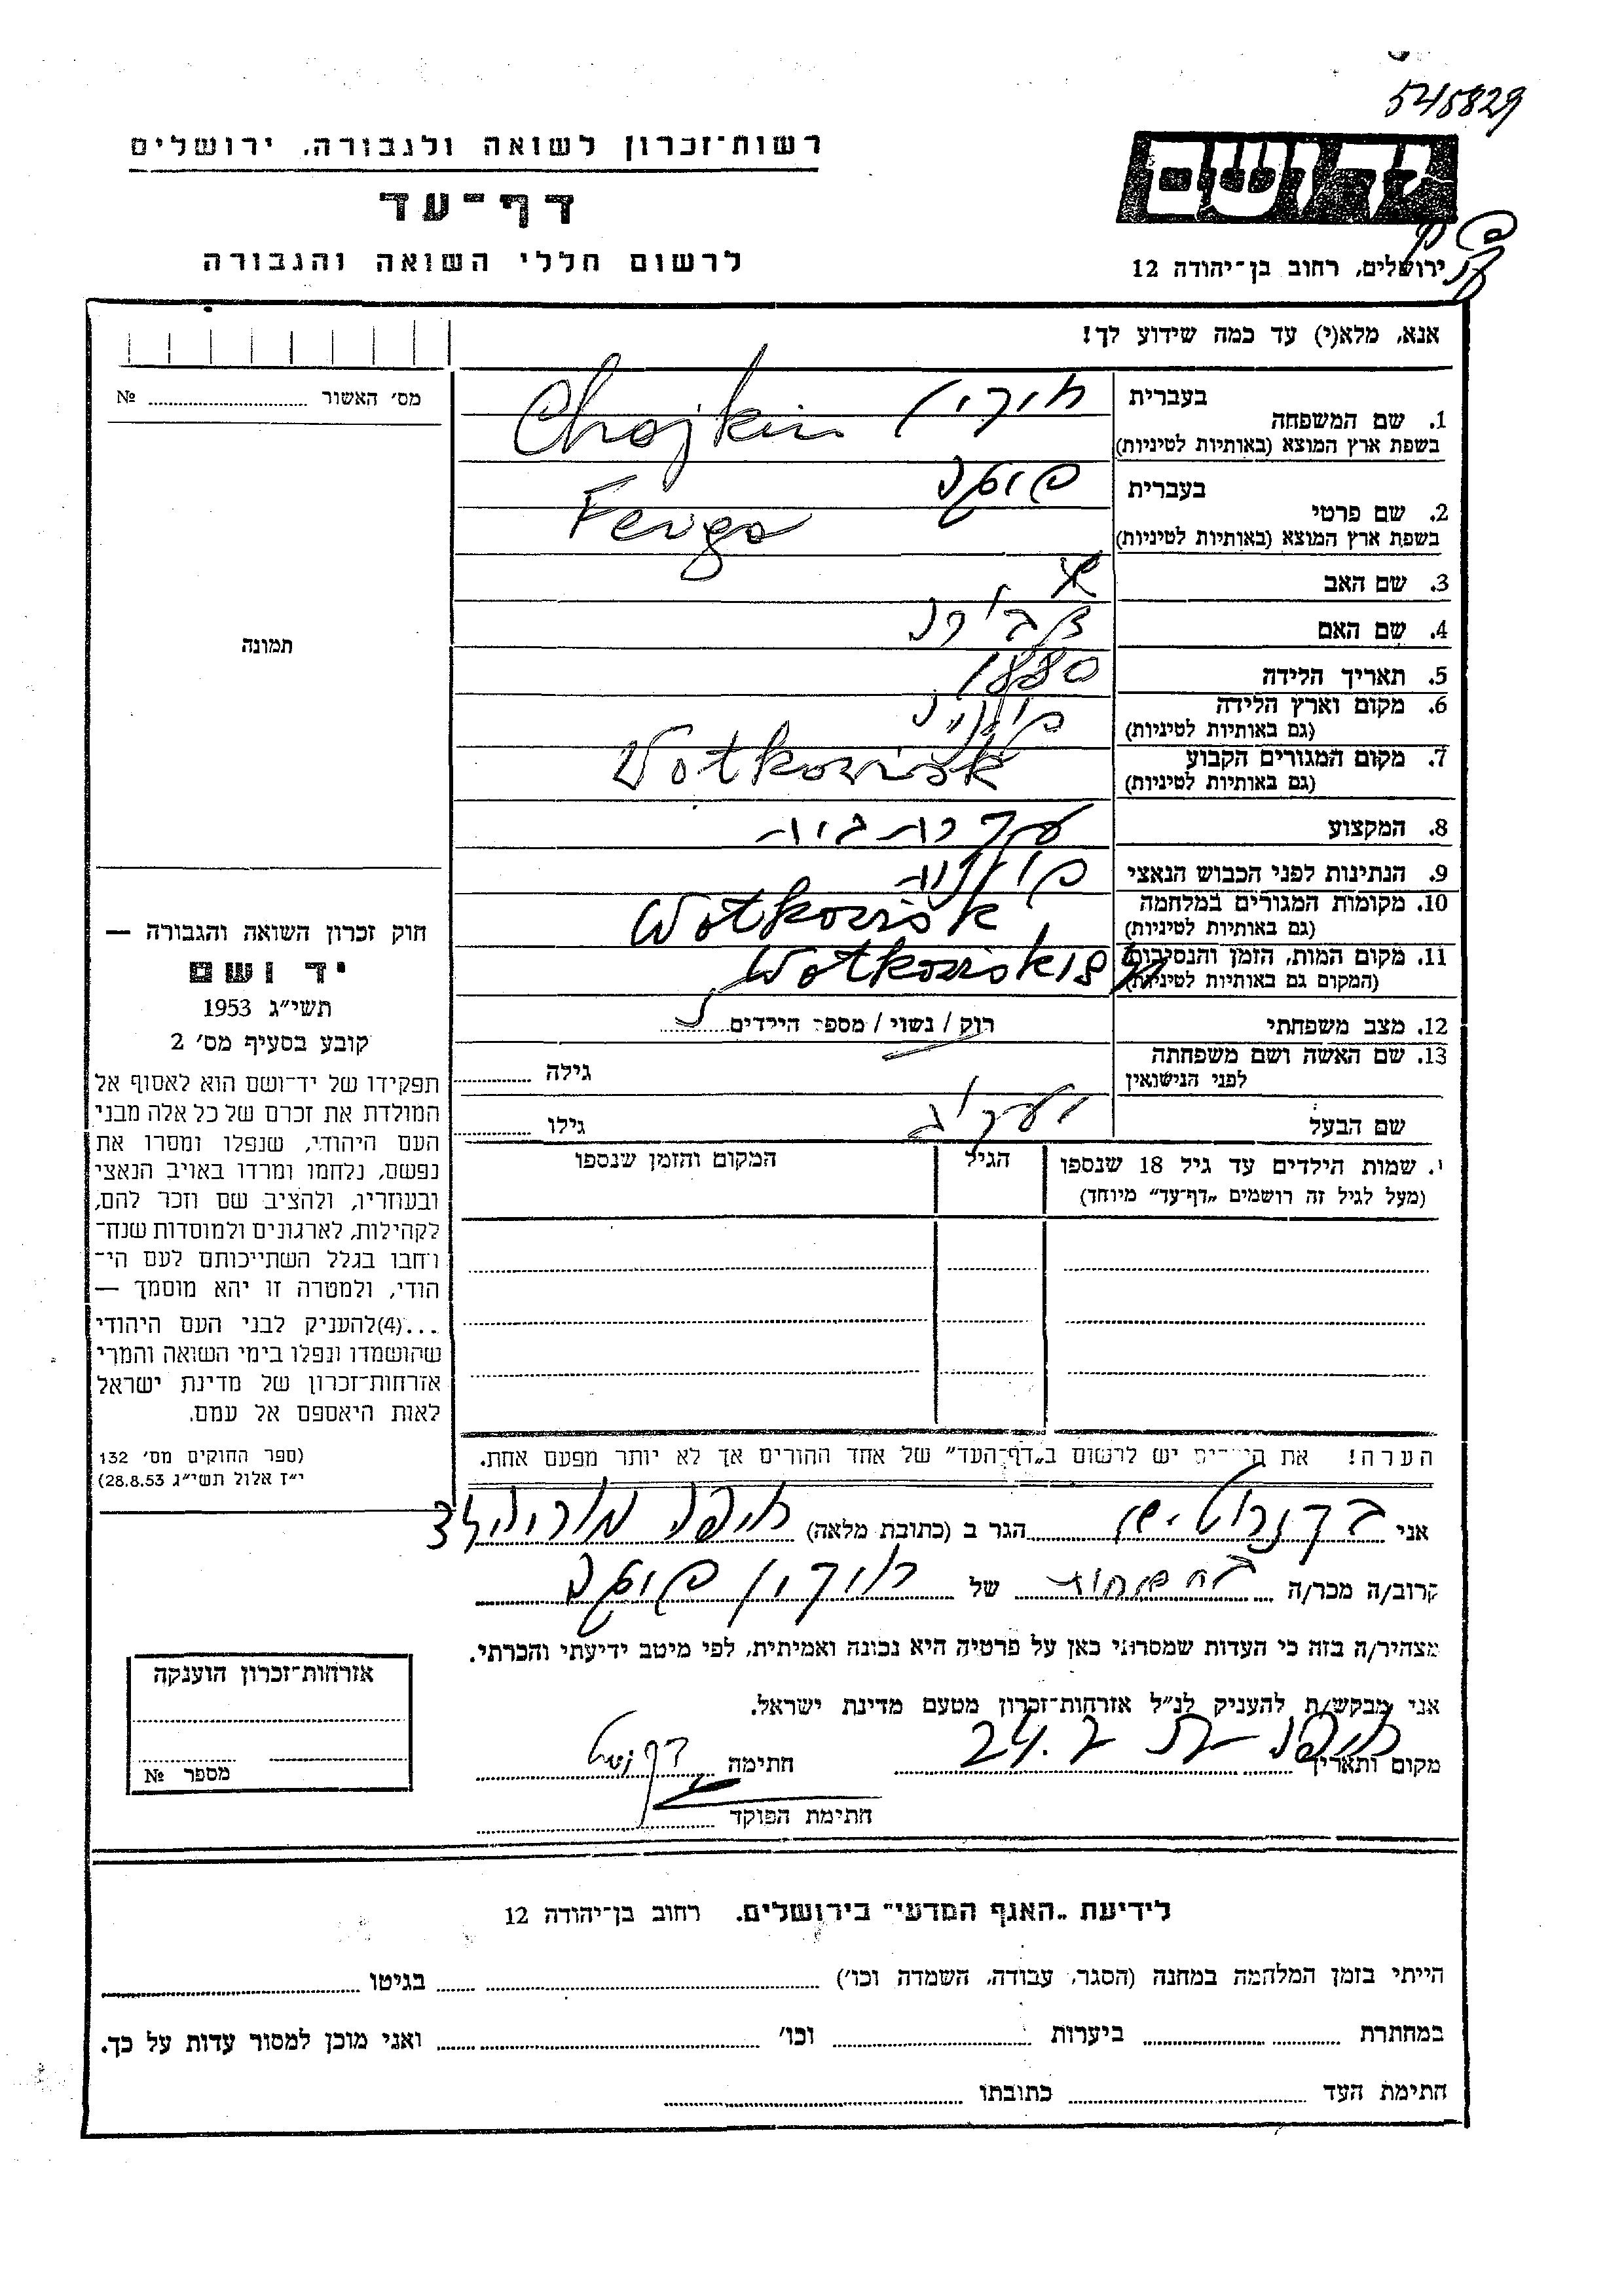 545829
רשות־זכרון לשואה ולגבורה, ירושלים
דף־עד
לרשום חללי השואה והגבורה
ידושם
ירושלים, רחוב בן־יהודה 12
אנא, מלא(י) עד כמה שידוע לך!
מס׳ האשור № 
תמונה
1. שם המשפחה
בעברית חייקין
בשפת ארץ המוצא (באותיות לטיניות) Chojkin
2. שם פרטי
בעברית פייגה
בשפת ארץ המוצא (באותיות לטיניות) Fenga
3. שם האב
4. שם האם
5. תאריך הלידה 1880
6. מקום וארץ הלידה פולניה
(גם באותיות לטיניות)
7. מקום המגורים הקבוע Wotkowisk
(גם באותיות לטיניות)
8. המקצוע עקרת בית
9. הנתינות לפני הכבוש הנאצי פולניה
10. מקומות המגורים במלחמה Wotkowisk
(גם באותיות לטיניות)
11. מקום המות, הזמן והנסיבות Wotkowisk
(המקום גם באותיות לטיניות)
12. מצב משפחתי רוק / נשוי / מספר הילדים
13. שם האשה ושם משפחתה
לפני הנישואין גילה
שם הבעל יעקב גילו
י. שמות הילדים עד גיל 18 שנספו הגיל המקום והזמן שנספו
(מעל לגיל זה רושמים „דף־עד״ מיוחד)
הערה! את הילדים יש לרשום ב„דף־העד״ של אחד ההורים אך לא יותר מפעם אחת.
חוק זכרון השואה והגבורה —
יד ושם
תשי״ג 1953
קובע בסעיף מס׳ 2
תפקידו של יד־ושם הוא לאסוף אל
המולדת את זכרם של כל אלה מבני
העם היהודי, שנפלו ומסרו את
נפשם, נלחמו ומרדו באויב הנאצי
ובעוזריו, ולהציב שם וזכר להם,
לקהילות, לארגונים ולמוסדות שנח־
רחבו בגלל השתייכותם לעם הי־
הודי, ולמטרה זו יהא מוסמך —
...(4)להעניק לבני העם היהודי
שהושמדו ונפלו בימי השואה והמרי
אזרחות־זכרון של מדינת ישראל
לאות היאספם אל עמם.
(ספר החוקים מס׳ 132
י״ז אלול תשי״ג 28.8.53)
אני הגר ב (כתובת מלאה) חיפה
קרוב/ה מכר/ה של חייקין פייגה
מצהיר/ה בזה כי העדות שמסרתי כאן על פרטיה היא נכונה ואמיתית, לפי מיטב ידיעתי והכרתי.
אני מבקש/ת להעניק לנ״ל אזרחות־זכרון מטעם מדינת ישראל.
מקום ותאריך חיפה חתימה
חתימת הפוקד
אזרחות־זכרון הוענקה
מספר №
לידיעת „האגף המדעי״ בירושלים. רחוב בן־יהודה 12
הייתי בזמן המלחמה במחנה (הסגר, עבודה, השמדה וכו׳) בגיטו
במחתרת ביערות וכו׳ ואני מוכן למסור עדות על כך.
חתימת העד כתובתו